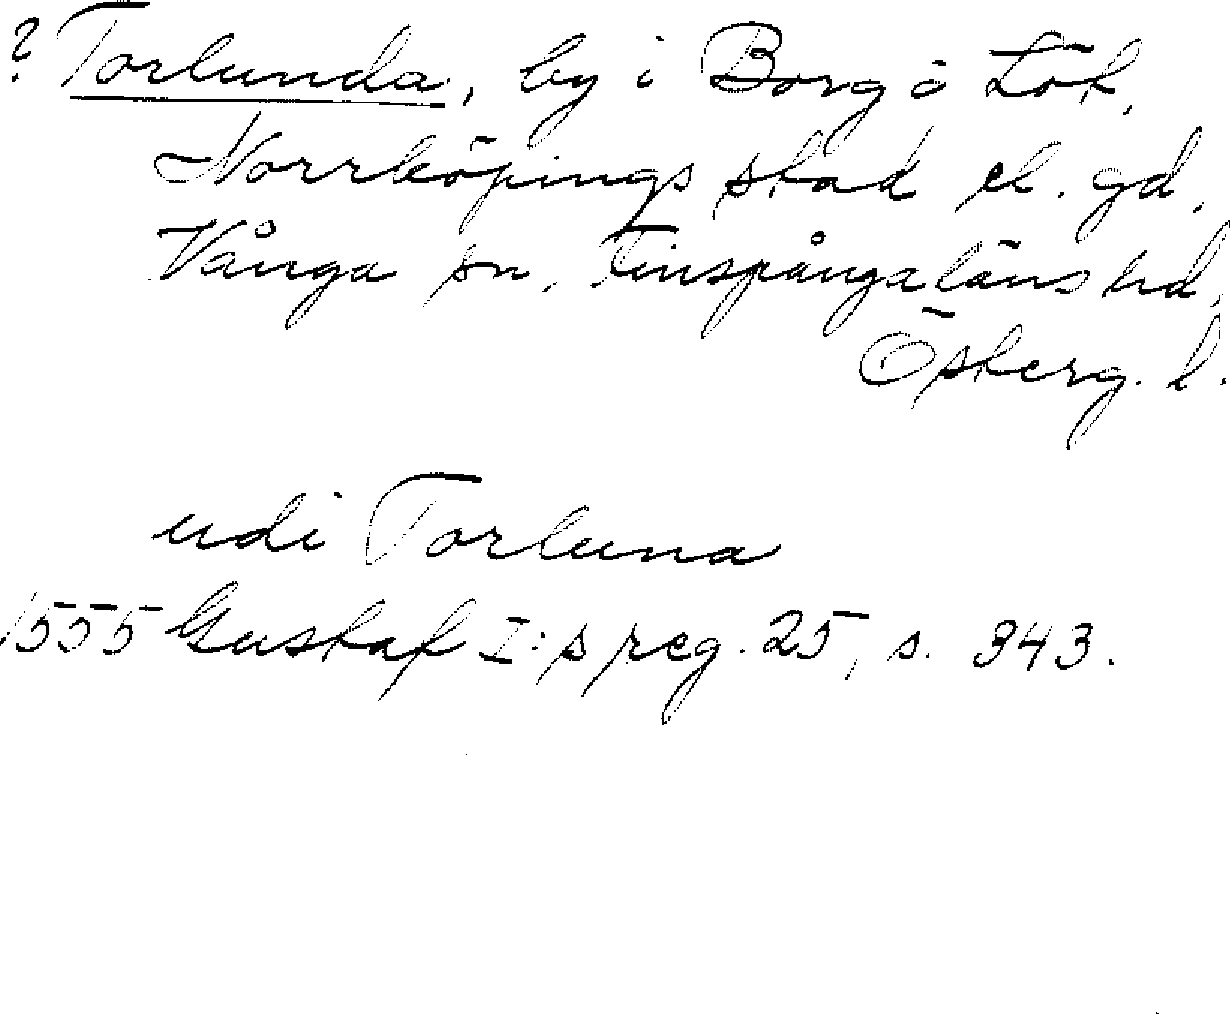 ? Torlunda, by i Borg o Löt,
Norrköpings stad el. gd.
Vånga sn, Finspångaläns hd,
Österg. l.
udi Torluna
1555 Gustaf I:s reg. 25, s. 343.